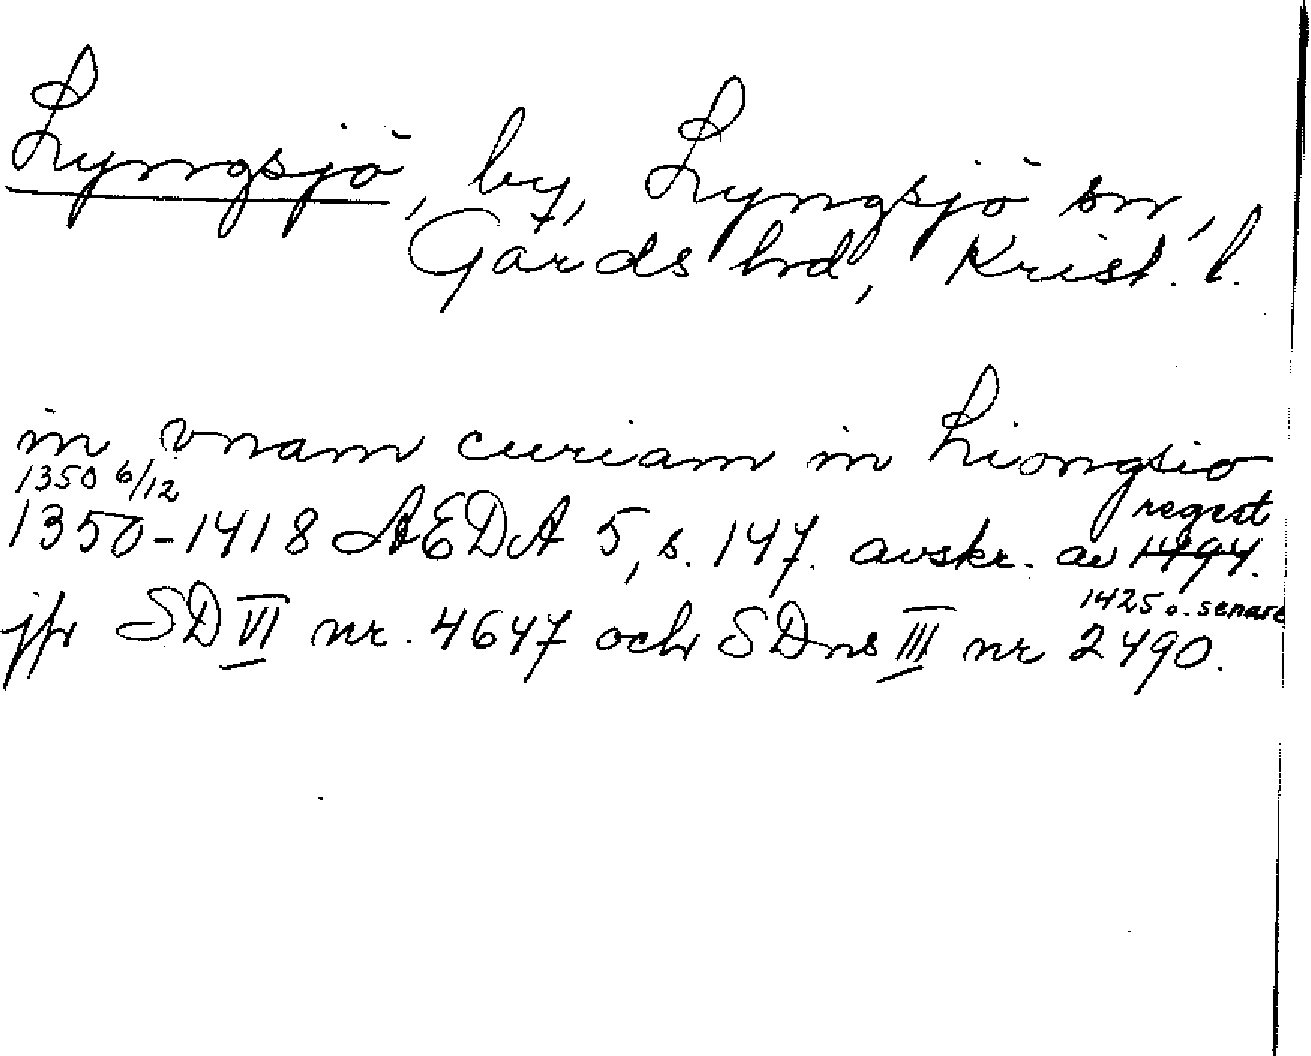 Lyngsjö, by, Lyngsjö sn,
Gärds hd, Krist. l.
in vnam curiam in Liongsio
1350 6/12
regest
1350-1418 AEDA 5, s. 147. avskr. av 1494.
1425 o. senare
jfr SD VI nr. 4647 och SDns III nr 2490.